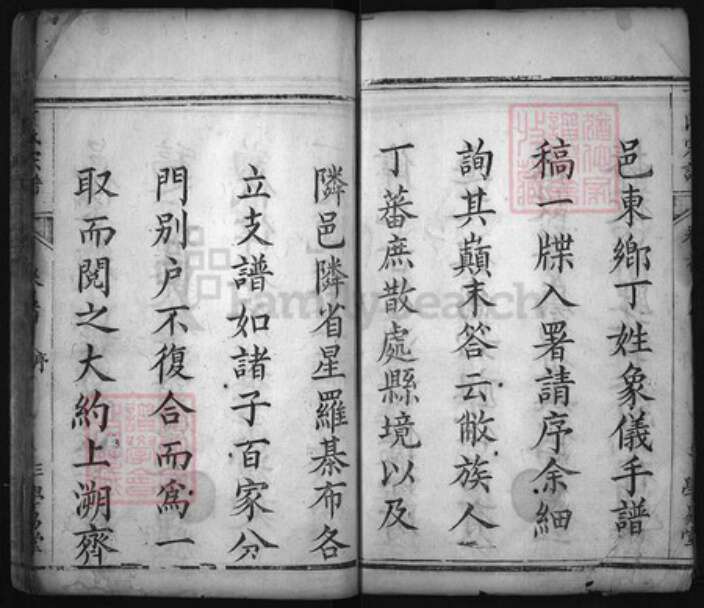 邑東鄉丁姓象儀手譜
稿一牒入署請序余細
詢其巔末答云敝族人
丁蕃庶散處縣境以及
隣邑隣省星羅棊布各
立支譜如諸子百家分
門別户不復合而爲一
取而閱之大約上溯齊
FamilySearch